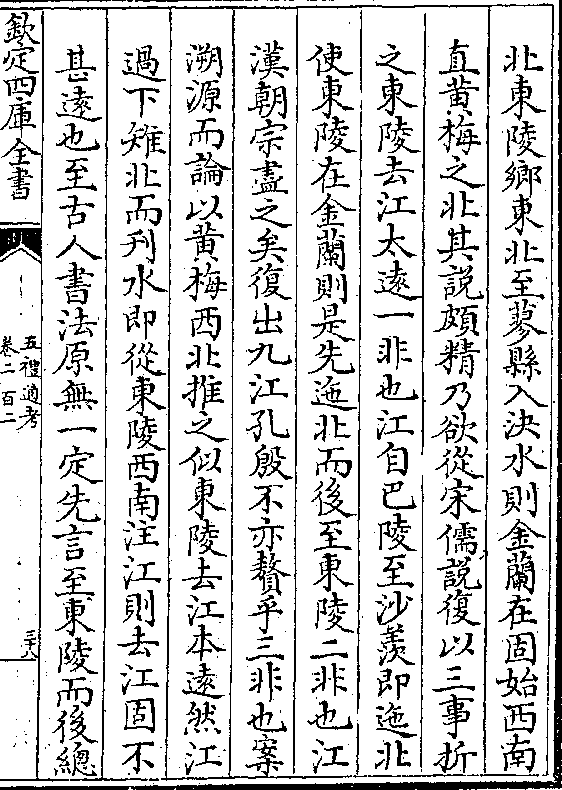 北東陵鄉東北至蓼縣入決水則金蘭在固始西南
直黃梅之北其說頗精乃欲從宋儒說復以三事折
之東陵去江太遠一非也江自巴陵至沙羡即迤北
使東陵在金蘭則是先迤北而後至東陵二非也江
漢朝宗盡之矣復出九江孔殷不亦贅乎三非也案
溯源而論以黃梅西北推之似東陵去江本遠然江
過下雉北而刋水即從東陵西南注江則去江固不
甚遠也至古人書法原無一定先言至東陵而後總
欽定四庫全書
五禮通考
卷二百二
三六